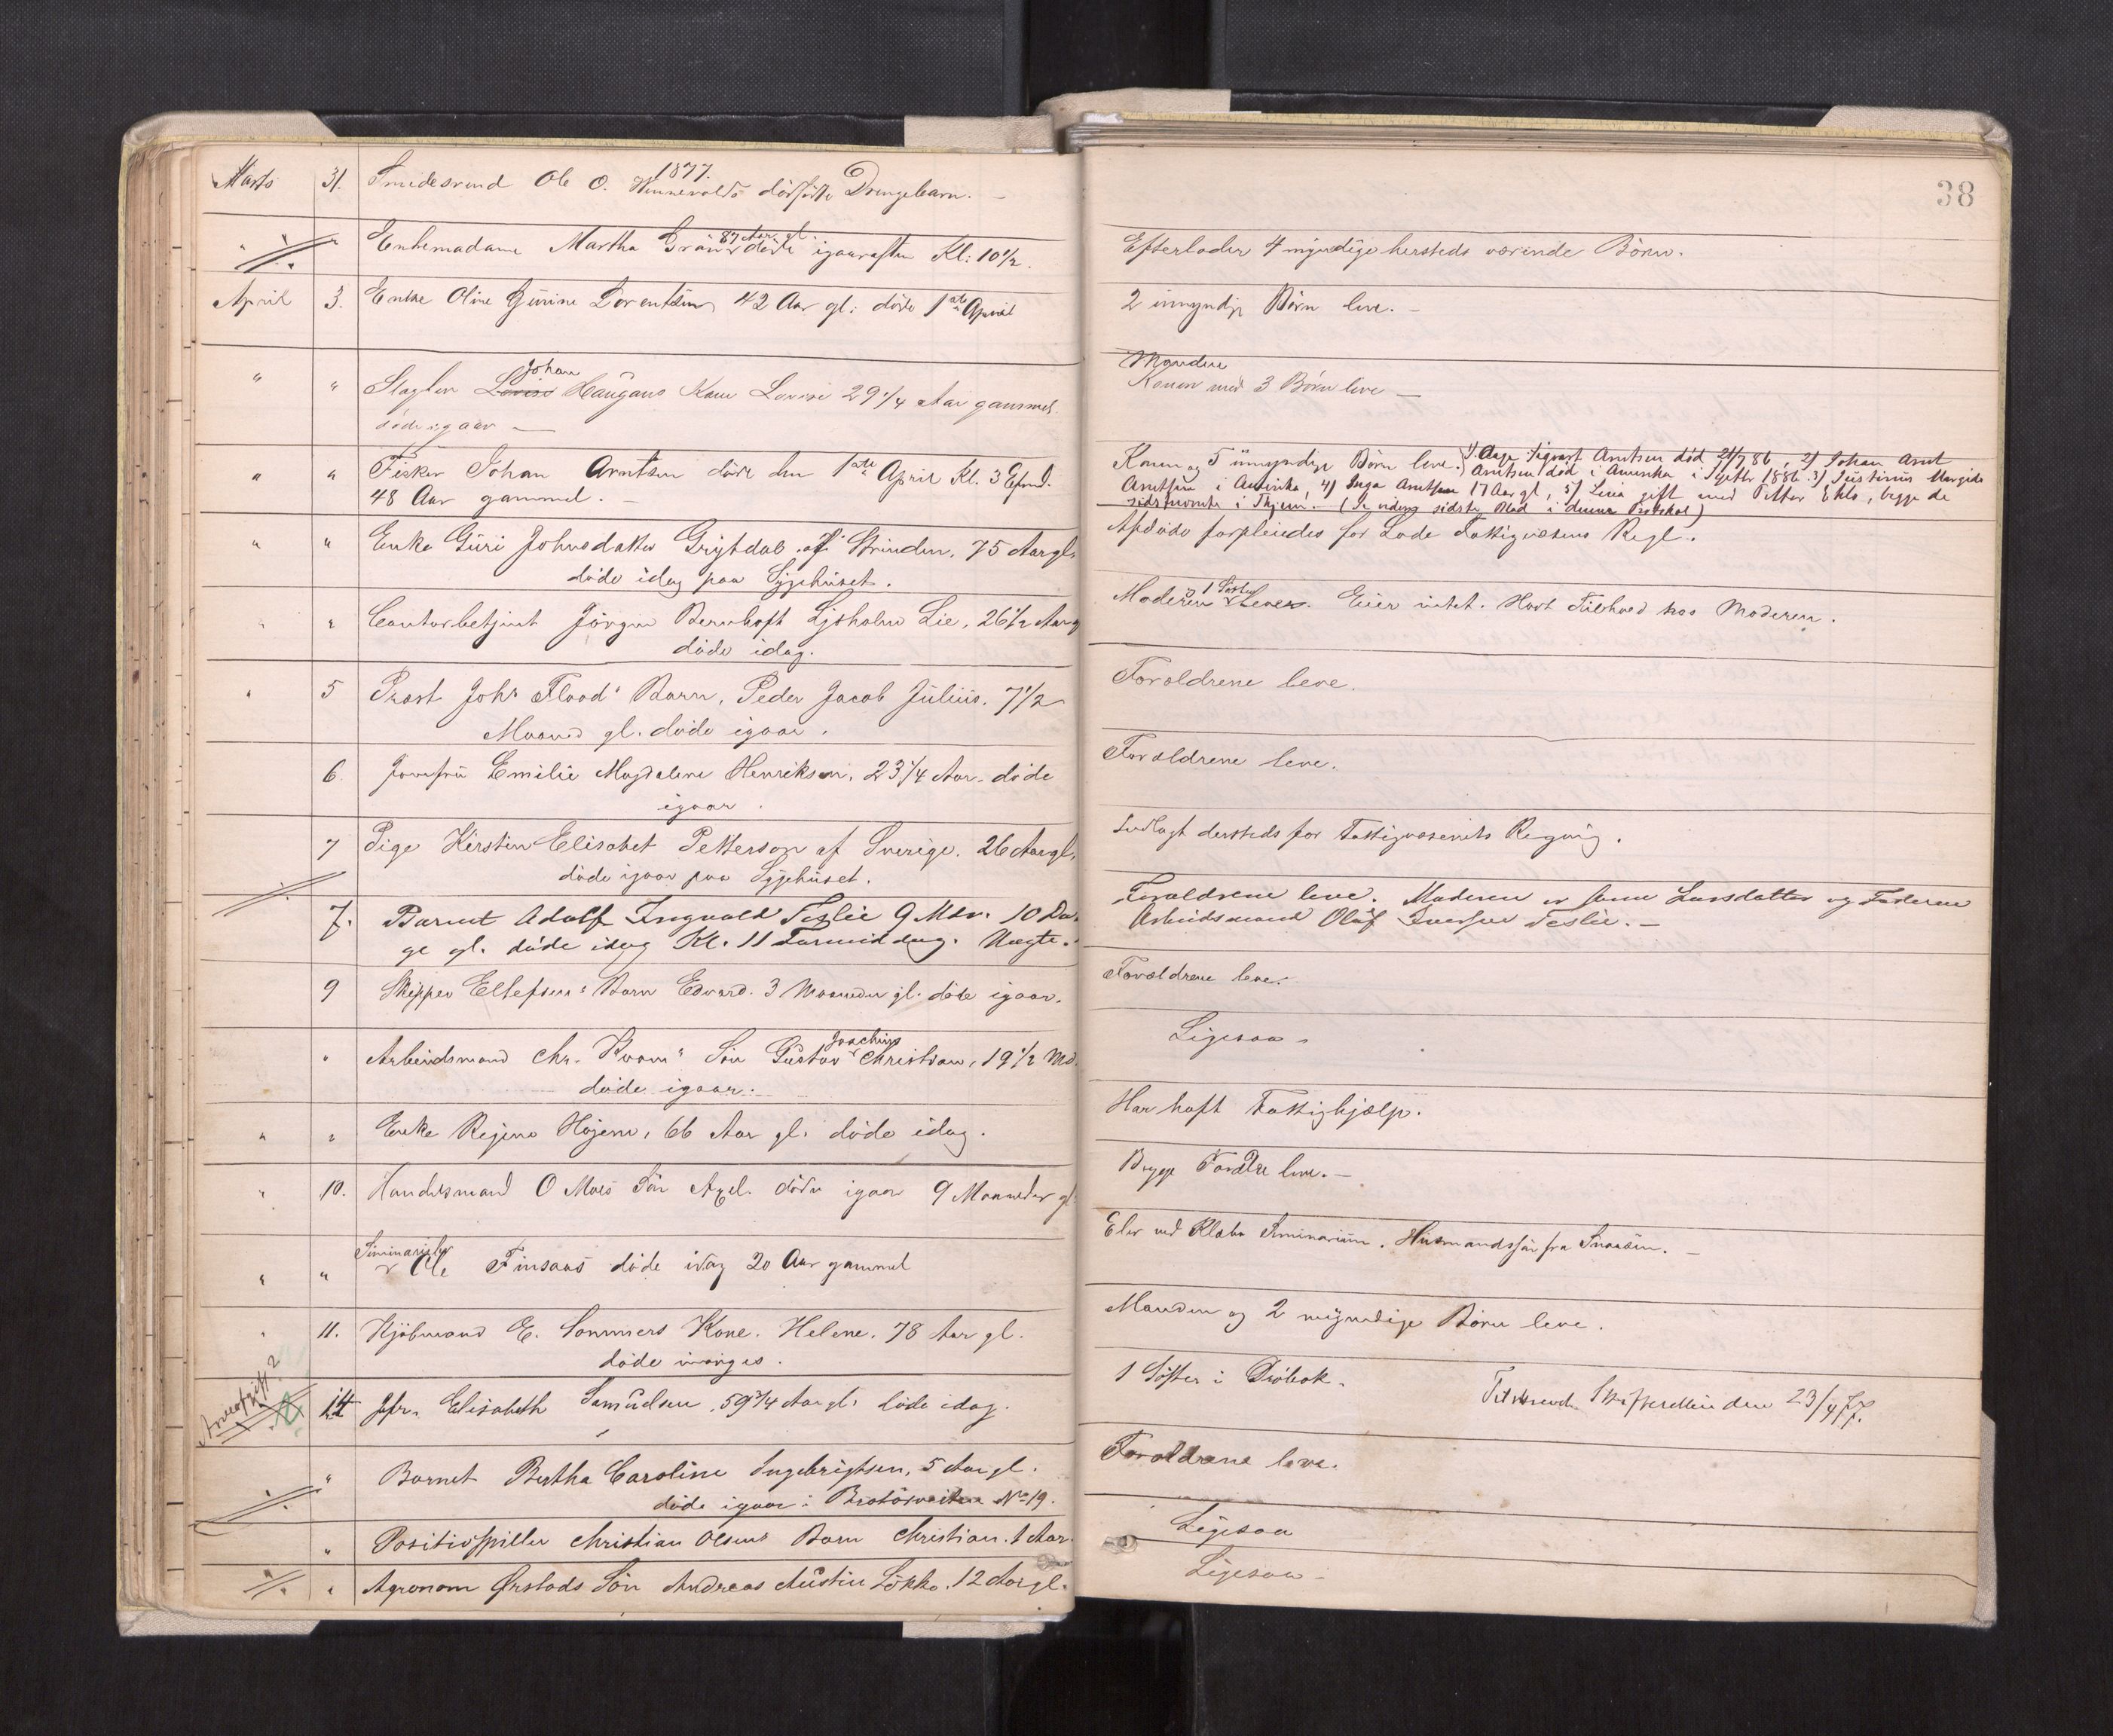 1877.
Marts 31. Smedesvend Ole O. Hinnevolds dødfødte Drengebarn. —
" " Enkemadame Martha Grøn 87 Aar gl. døde igaaraften Kl: 10 1/2.
April 3. Enke Oline Gurine Lorentsen 42 Aar gl: døde 1ste April
" " Slagter Lovise Johan Haugans Kone Lovise 29 1/4 Aar gammel
døde igaar —
" " Fisker Johan Arntsen døde den 1ste April Kl. 3 Efmd.
48 Aar gammel. —
" " Enke Guri Johnsdatter Grytdal af Strinden, 75 Aar gl.
døde idag paa Sygehuset.
" " Contorbetjent Jørgen Bernhoft Ljsholm Lie, 26 1/2 Aar g
døde idag.
" 5 Prost Johs Flood's Barn, Peder Jacob Julius. 7 1/2
Maaned gl. døde igaar.
6. Jomfru Emilie Magdalene Henriksen, 23 1/4 Aar. døde
igaar.
7 Pige Kirsten Elisabet Petterson af Sverige. 26 Aar gl.
døde igaar paa Sygehuset.
7. Barnet Adolf Ingvald Teslie 9 Mdr. 10 Da-
ge gl. døde idag Kl. 11 Formiddag. Ægte.
9 Skipper Ellefsens Barn Edvard. 3 Maaneder gl. døde igaar.
" Arbeidsmand Chr. Kvams Søn Gustav Joachim Christian, 19 1/2 Md.
døde igaar.
" " Enke Regine Højem, 66 Aar gl. døde idag.
" 10. Handelsmand O Moes Søn Axel. døde igaar 9 Maaneder gl
" " Seminarielev Ole Finsaas døde idag 20 Aar gammel
" 11. Kjøbmand E. Sommers Kone. Helene. 78 Aar gl.
døde imorges.
Arveafgift? 14 Jfr. Elisabeth Samuelsen, 59 3/4 Aar gl. døde idag.
" Barnet Bertha Caroline Ingebrigtsen, 5 Aar gl.
døde igaar i No 19.
" Positivspiller Christian Olsens Barn Christian. 1 Aar.
" Agronom Ørstads Søn Andreas Austin Løkke. 12 Aar gl.
38
Efterlader 4 myndige hersteds værende Børn.
2 umyndige Børn leve. —
Manden
Konen med 3 Børn leve —
Konen og 5 umyndige Børn leve. 1) Aage Sigvart Arntsen død 21/7 86, 2) Johan Arnt
Arntsen død i Amerika i Septbr 1886. 3) Justinus Margido
Arntsen i Amerika, 4) Inga Arntsen 17 Aar gl, 5) Lina gift med Petter Ekle, begge de
sidstnævnte i Thjem. — (Se videre sidste Blad i denne Protokol)
Afdøde forpleiedes for Lade Fattigvæsens Regl.
Moderen & 1 Søster Lever. Eier intet. Havt Tilhold hos Moderen.
Forældrene leve.
Forældrene leve.
Indlagt dersteds for Fattigvæsenets Regning.
Forældrene leve. Moderen er Anne Larsdatter og Faderen
Arbeidsmand Oluf Iversen Teslie. —
Forældrene leve.
Ligesaa.
Har haft Fattighjælp.
Begge Forældre leve. —
Elev ved Klæbu Seminarium. Husmandssøn fra Snaasen. —
Manden og 2 myndige Børn leve.
1 Søster i Drøbak. Tilstrend. Skifteretten den 23/4 77.
Forældrene leve.
Ligesaa
Ligesaa —